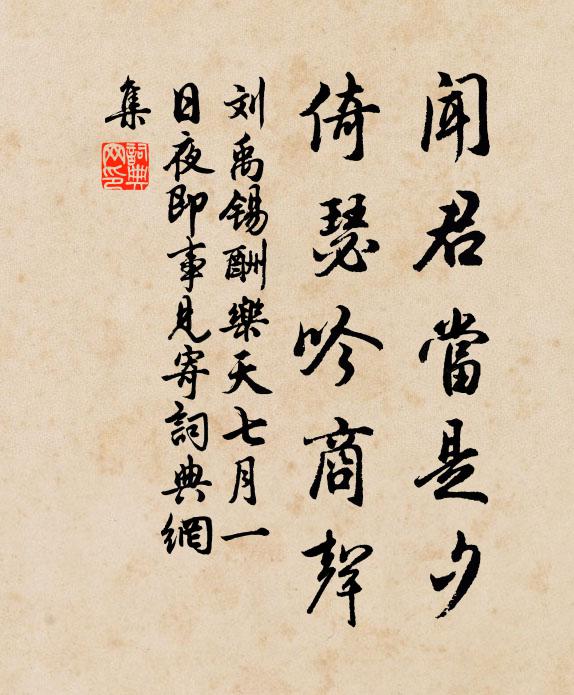 闻君當是夕
倚瑟吟商聲
刘禹锡酬樂天七月一
日夜即事見寄詞典網
集
詞典
网印